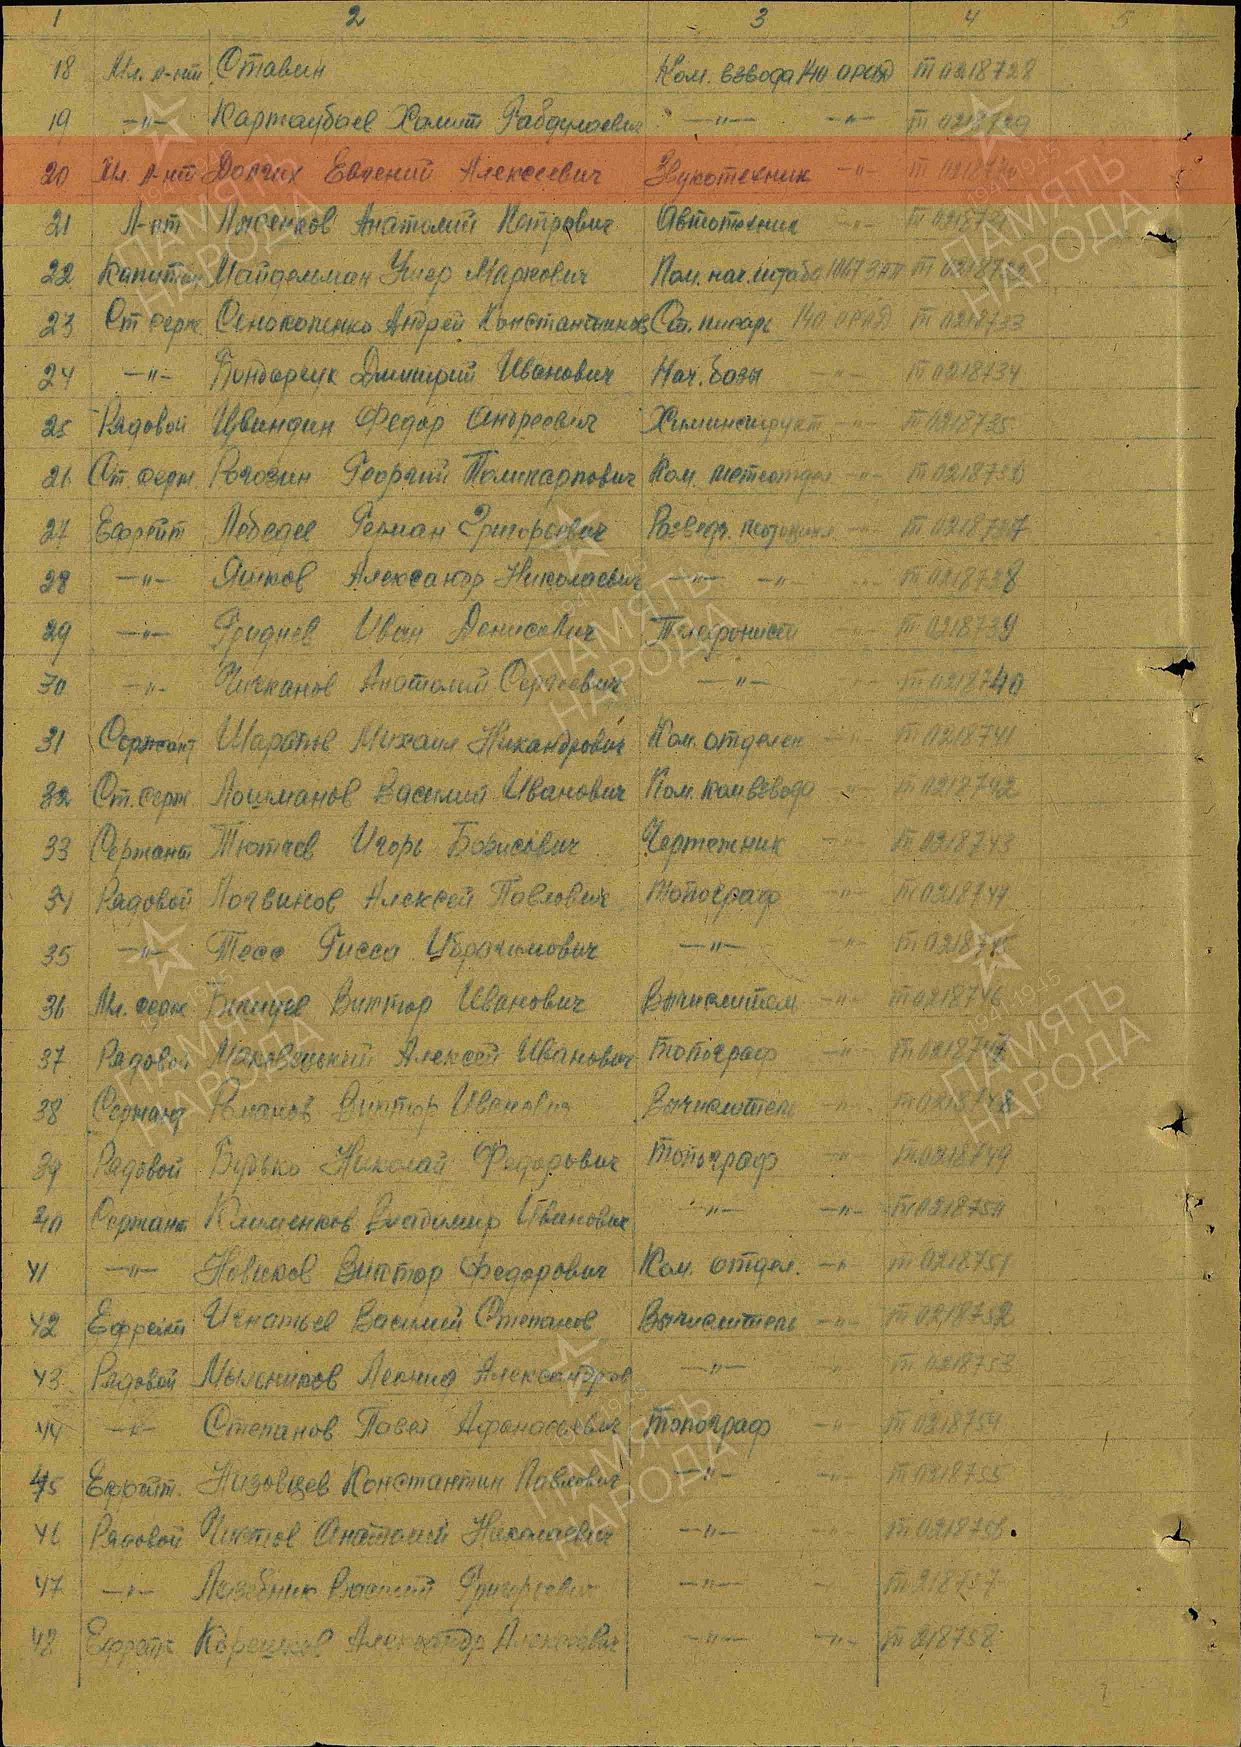 1 2 3 4 5
18 Мл. л-нт Ставин Ком. взвода 140 ОРАД Т 0218728
19 —"— Картаубаев Хамит —"— —"— Т 0218729
20 Мл. л-нт Долгих Евгений Алексеевич Звукотехник —"— Т 0218730
21 Л-нт Анатолий Петрович Автотехник —"— Т 0218731
22 Капитан Майдельман Умер Маркович Пом. нач. штаба 1067 ЗАП Т 0218732
23 Ст. серж Сенокопенко Андрей Константинов Ст. писарь 140 ОРАД Т 0218733
24 —"— Бондарчук Дмитрий Иванович Нач. базы —"— Т 0218734
25 Рядовой Цвиндин Федор Андреевич Химинструкт —"— Т 0218735
26 Ст. серж. Рогозин Георгий Поликарпович Ком. метеоотдел. —"— Т 0218736
27 Ефрейт Лебедев Герман Григорьевич Развед. —"— Т 0218737
28 —"— Яшков Александр Николаевич —"— —"— —"— Т 0218738
29 —"— Гриднев Иван Денисович Телефонист —"— Т 0218739
30 —"— Чичканов Анатолий Сергеевич —"— —"— Т 0218740
31 Сержант Шарапов Михаил Никандрович Ком. отделен —"— Т 0218741
32 Ст. серж. Лошманов Василий Иванович Пом. ком взвода —"— Т 0218742
33 Сержант Тютчев Игорь Борисович Чертежник —"— Т 0218743
34 Рядовой Логвинов Алексей Павлович Топограф —"— Т 0218744
35 —"— Тесс Гисса Ибрагимович —"— —"— Т 0218745
36 Мл. серж Виктор Иванович Вычислитель —"— Т 0218746
37 Рядовой Маковецкий Алексей Иванович Топограф —"— Т 0218747
38 Сержант Романов Виктор Иванович Вычислитель —"— Т 0218748
39 Рядовой Будько Николай Федорович Топограф —"— Т 0218749
40 Сержант Клименков Владимир Иванович —"— —"— Т 0218750
41 —"— Новиков Виктор Федорович Ком. отдел. —"— Т 0218751
42 Ефрейт Игнатьев Василий Степанов Вычислитель —"— Т 0218752
43 Рядовой Мыльников Леонид Александров —"— —"— Т 0218753
44 —"— Степанов Павел Афанасьевич Топограф —"— Т 0218754
45 Ефрейт. Низовцев Константин Павлович —"— —"— Т 0218755
46 Рядовой Анатолий Николаевич —"— —"— Т 0218756
47 —"— Лазебник Василий Григорьевич —"— —"— Т 218757
48 Ефрейт Корешков Александр Алексеевич —"— —"— Т 218758
ПАМЯТЬ НАРОДА
1941-1945